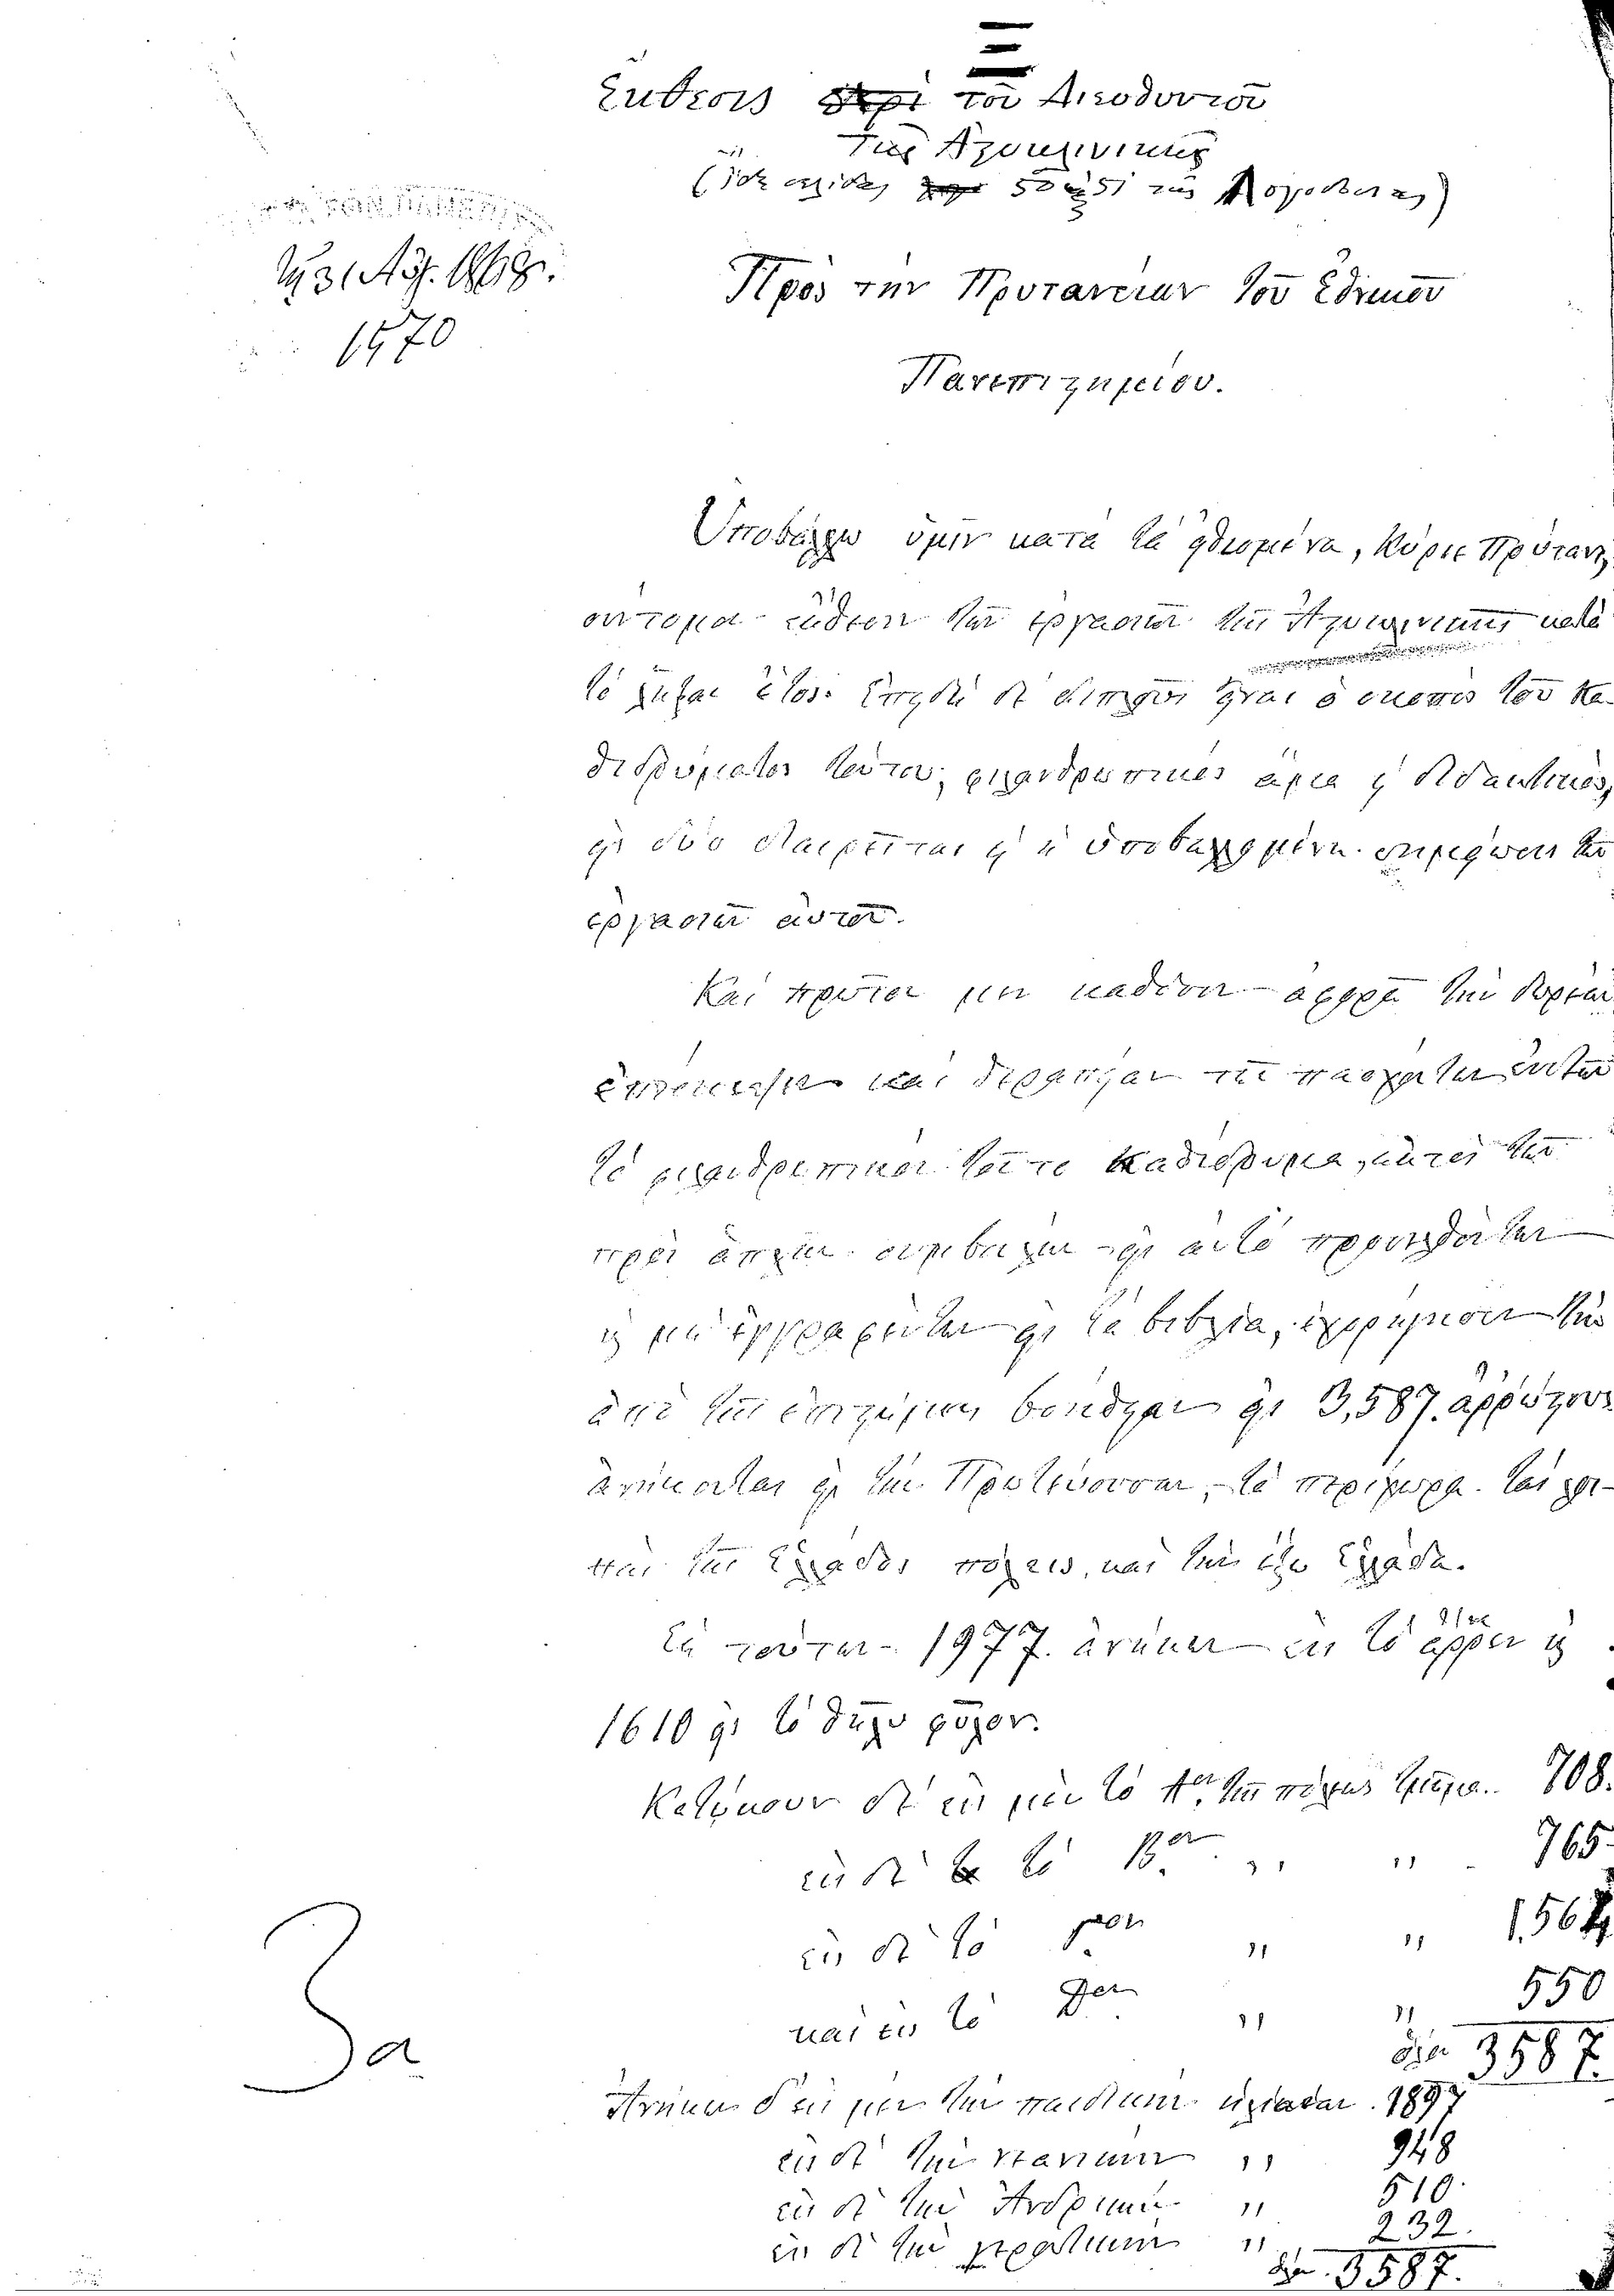 Ξ
Ἔκθεσις περὶ τοῦ Διευθυντοῦ
τῆς Ἀστυκλινικῆς
(ἴδε σελίδας 50 καὶ 51 τῆς Λογοδοσίας)
Τῇ 31 Αὐγ. 1868.
1570
Πρὸς τὴν Πρυτανείαν τοῦ Ἐθνικοῦ
Πανεπιστημίου.
Ὑποβάλλω ὑμῖν κατὰ τὰ εἰθισμένα, Κύριε Πρύτανι,
σύντομον ἔκθεσιν τῶν ἐργασιῶν τῆς Ἀστυκλινικῆς κατὰ
τὸ λῆξαν ἔτος. Ἐπειδὴ δὲ διπλοῦς εἶναι ὁ σκοπὸς τοῦ κα-
θιδρύματος τούτου, φιλανθρωπικὸς ἅμα καὶ διδακτικός,
εἰς δύο διαιρεῖται καὶ ἡ ὑποβαλλομένη σημείωσις τῶν
ἐργασιῶν αὐτοῦ.
Καὶ πρῶτον μὲν καθόσον ἀφορᾷ τὴν δωρεὰν
ἐπίσκεψιν καὶ θεραπείαν τῶν πασχόντων ἐκ τῶν
τὸ φιλανθρωπικὸν τοῦτο καθίδρυμα, ἐκτὸς τῶν
πρὸς ἁπλῆν συμβουλὴν εἰς αὐτὸ προσελθόντων
καὶ μὴ ἐγγραφέντων εἰς τὰ βιβλία, ἐχορήγησεν τὴν
ἀπὸ τῆς ἐπιστήμης βοήθειαν εἰς 3,587. ἀῤῥώστους
ἀνήκοντας εἰς τὴν Πρωτεύουσαν, τὰ περίχωρα τὰς λοι-
πὰς τῆς Ἑλλάδος πόλεις, καὶ τὴν ἔξω Ἑλλάδα.
Ἐκ τούτων 1977. ἀνῆκον εἰς τὸ ἄῤῥεν καὶ
1610 εἰς τὸ θῆλυ φῦλον.
Κατῴκουν δὲ εἰς μὲν τὸ Αον τῆς πόλεως τμῆμα.. 708.
εἰς δὲ τὸ Βον ,, ,, 765
εἰς δὲ τὸ Γον ,, ,, 1,564
καὶ εἰς τὸ Δον ,, ,, 550
ὅλα 3587.
Ἀνῆκον δ' εἰς μὲν τὴν παιδικὴν ἡλικίαν. 1897
εἰς δὲ τὴν νεανικὴν ,, 948
εἰς δὲ τὴν Ἀνδρικὴν ,, 510.
εἰς δὲ τὴν γεροντικὴν ,, 232.
ὅλα. 3587.
3α